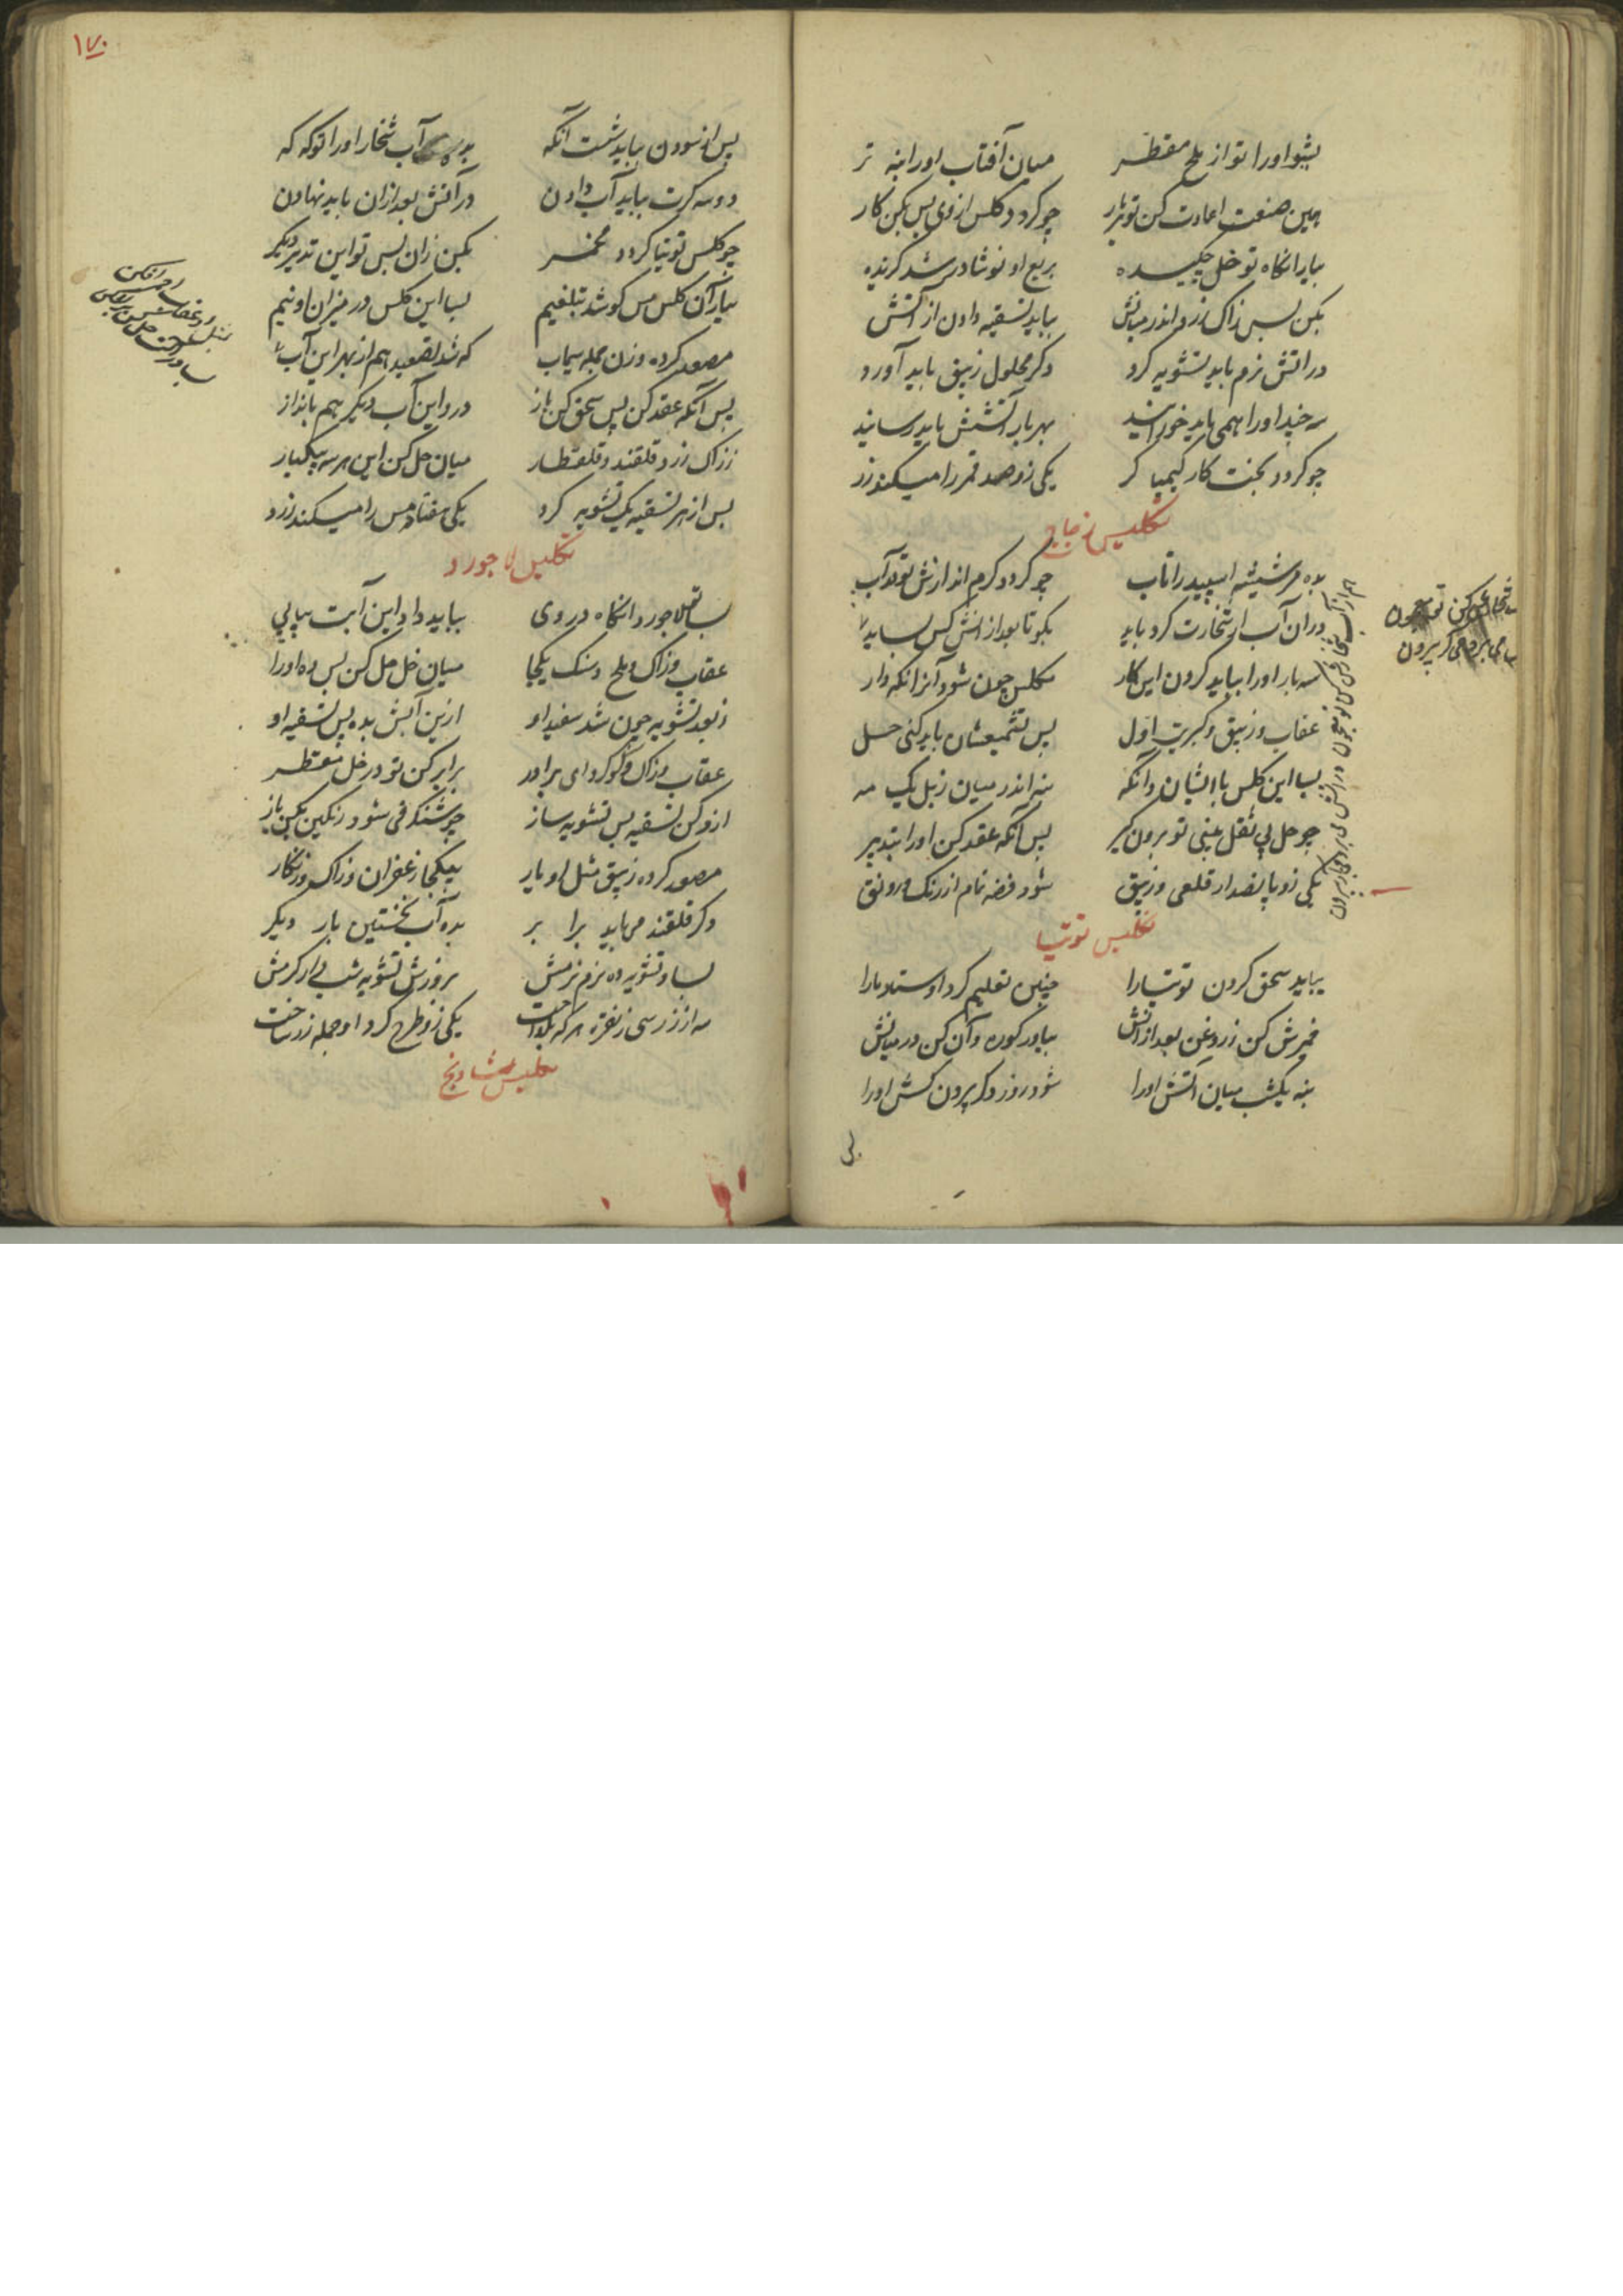 بشو او را تو از ملح مقطر میان آفتاب او را بنه تر
همین صنعت اعادت کن تو هر بار چو کردد کلس از وی پس بکن کار
بیار انکاه تو خل چکیده بربع او نوشادر شد کزیده
بکن پس زاک زرد اندر میانش بباید تسقیه دادن از آتش
در اتش نرم باید تشویه کرد دکر محلول زیبق باید آورد
سه چند او را همی باید خورانید بهر بار آتشش باید رسانید
چو کردد پخت کار کیمیا کر یکی زو صد قمر را میکند زر
تکلیس زجاج
بده مر شیشه اسپید را تاب چو کردد کرم اندازش تو در آب
در ان آب ار شخارت کرد باید بکو تا بعد از انش کس بساید
سه بار او را بباید کردن این کار مکلس چون شود آنرا نکه دار
عقاب و زیبق و کبریت اول پس تشمیعشان باید کنی حل
بسا این کلس با ایشان و آنکه بنه اندر میان زبل یک مه
چو حل بی ثقل بینی تو برون کیر پس آنکه عقد کن او را بتدبیر
یکی زو پانصد ار قلعی و زیبق شود فضه تمام از رنک و رونق
تکلیس توتیا
بباید سحق کردن توتیا را چنین تعلیم کرد اوستاد ما را
خمیرش کن ز روغن بعد از آنش بیاور کوزه و آن کن در میانش
بنه یکشب میان آتش او را شود روز دکر بیرون کش او را
۱۷۰
پس از سودن بباید شست آنکه بده آب شخار او را
دو سه کرت بباید آب دادن در آتش بعد از ان باید نهادن
چو کلس توتیا کردد مخمر بکن زان پس تو این تدبیر دیکر
بیار آن کلس مس کو شد تبلغیم بسا این کلس در میزان او نیم
مصعد کرده وزن جمله سیماب که شد تصعید هم از بهر این آب
پس آنکه عقد کن پس سحق کن باز درو این آب دیکر هم بانداز
ز زاک زرد و قلقند و قلقطار میان حل کن این هر سه بیکبار
پس از هر تسقیه یک تشویه کرد یکی هفتاد مس را میکند زرد
تکلیس لاجورد
بسا تو لاجورد انکاه در وی بباید داد این آبت پیاپی
عقاب و زاک و ملح و سنک یکجا میان خل حل کن پس ده او را
ز بعد تشویه چون شد سفید او ازین آبش بده پس تسقیه او
عقاب و زاک و کوکرد ای برادر برابر کن تو در خل مقطر
ازو کن تسقیه پس تشویه ساز چو شنکرفی شود رنکین بکن باز
مصعد کرده زیبق مثل او یار بیکجا زعفران و زاک و زنکار
دکر قلقند می باید برابر بده آب نخستین بار دیکر
بسا و تشویه ده نرم نرمش بروزش تشویه شب دار کرمش
سه از زر سی ز نقره هر که بکداخت یکی زو طرح کرد او جمله زر ساخت
تکلیس شادنج